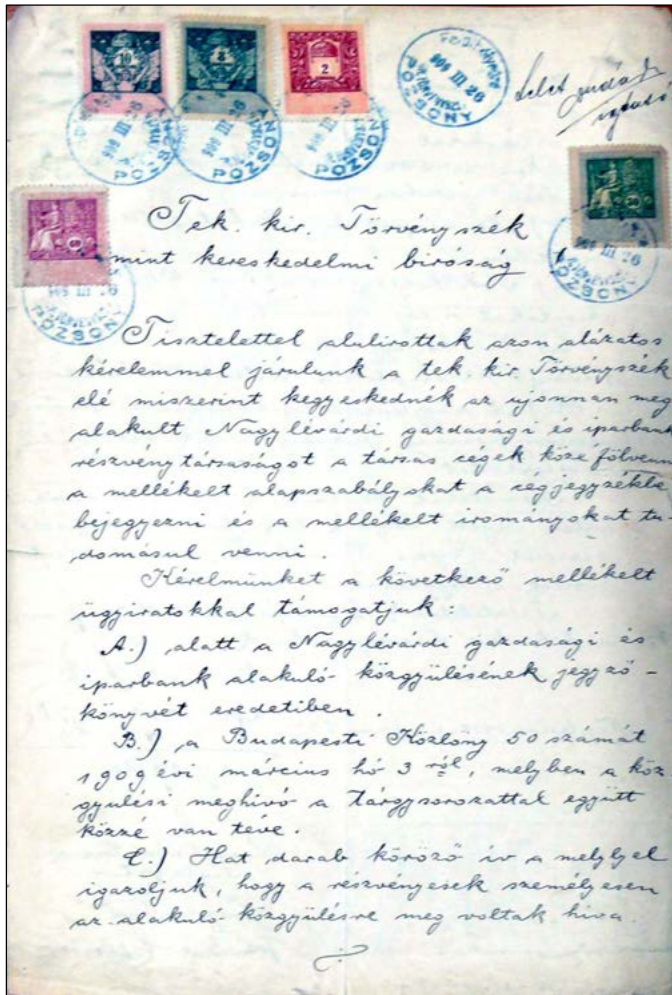 10
8
2
909 III 26
POZSONY
909 III 26
POZSONY
909 III 26
POZSONY
909 III 26
POZSONY
909 III 26
POZSONY
909 III 26
POZSONY
Tek. kir. Törvényszék
mint kereskedelmi biróság
Tisztelettel alulirottak azon alázatos
kérelemmel járulunk a tek. kir. Törvényszék
elé miszerint kegyeskednék az ujonnan meg
alakult Nagylévárdi gazdasági és iparbank
részvénytársaságot a társas cégek köze fölvenni
a mellékelt alapszabályokat a cégjegyzékbe
bejegyezni és a mellékelt irományokat tu-
domásul venni.
Kérelmünket a következő mellékelt
ügyiratokkal támogatjuk:
A.) alatt a Nagylévárdi gazdasági és
iparbank alakuló közgyülésének jegyző-
könyvét eredetiben.
B.) a Budapesti Közlöny 50 számát
1909 évi március hó 3 ról, melyben a köz
gyülési meghivó a tárgysorozattal együtt
közzé van téve.
C.) Hat darab köröző iv a melylyel
igazoljuk, hogy a részvényesek személyesen
az alakuló közgyülésre meg voltak hiva.